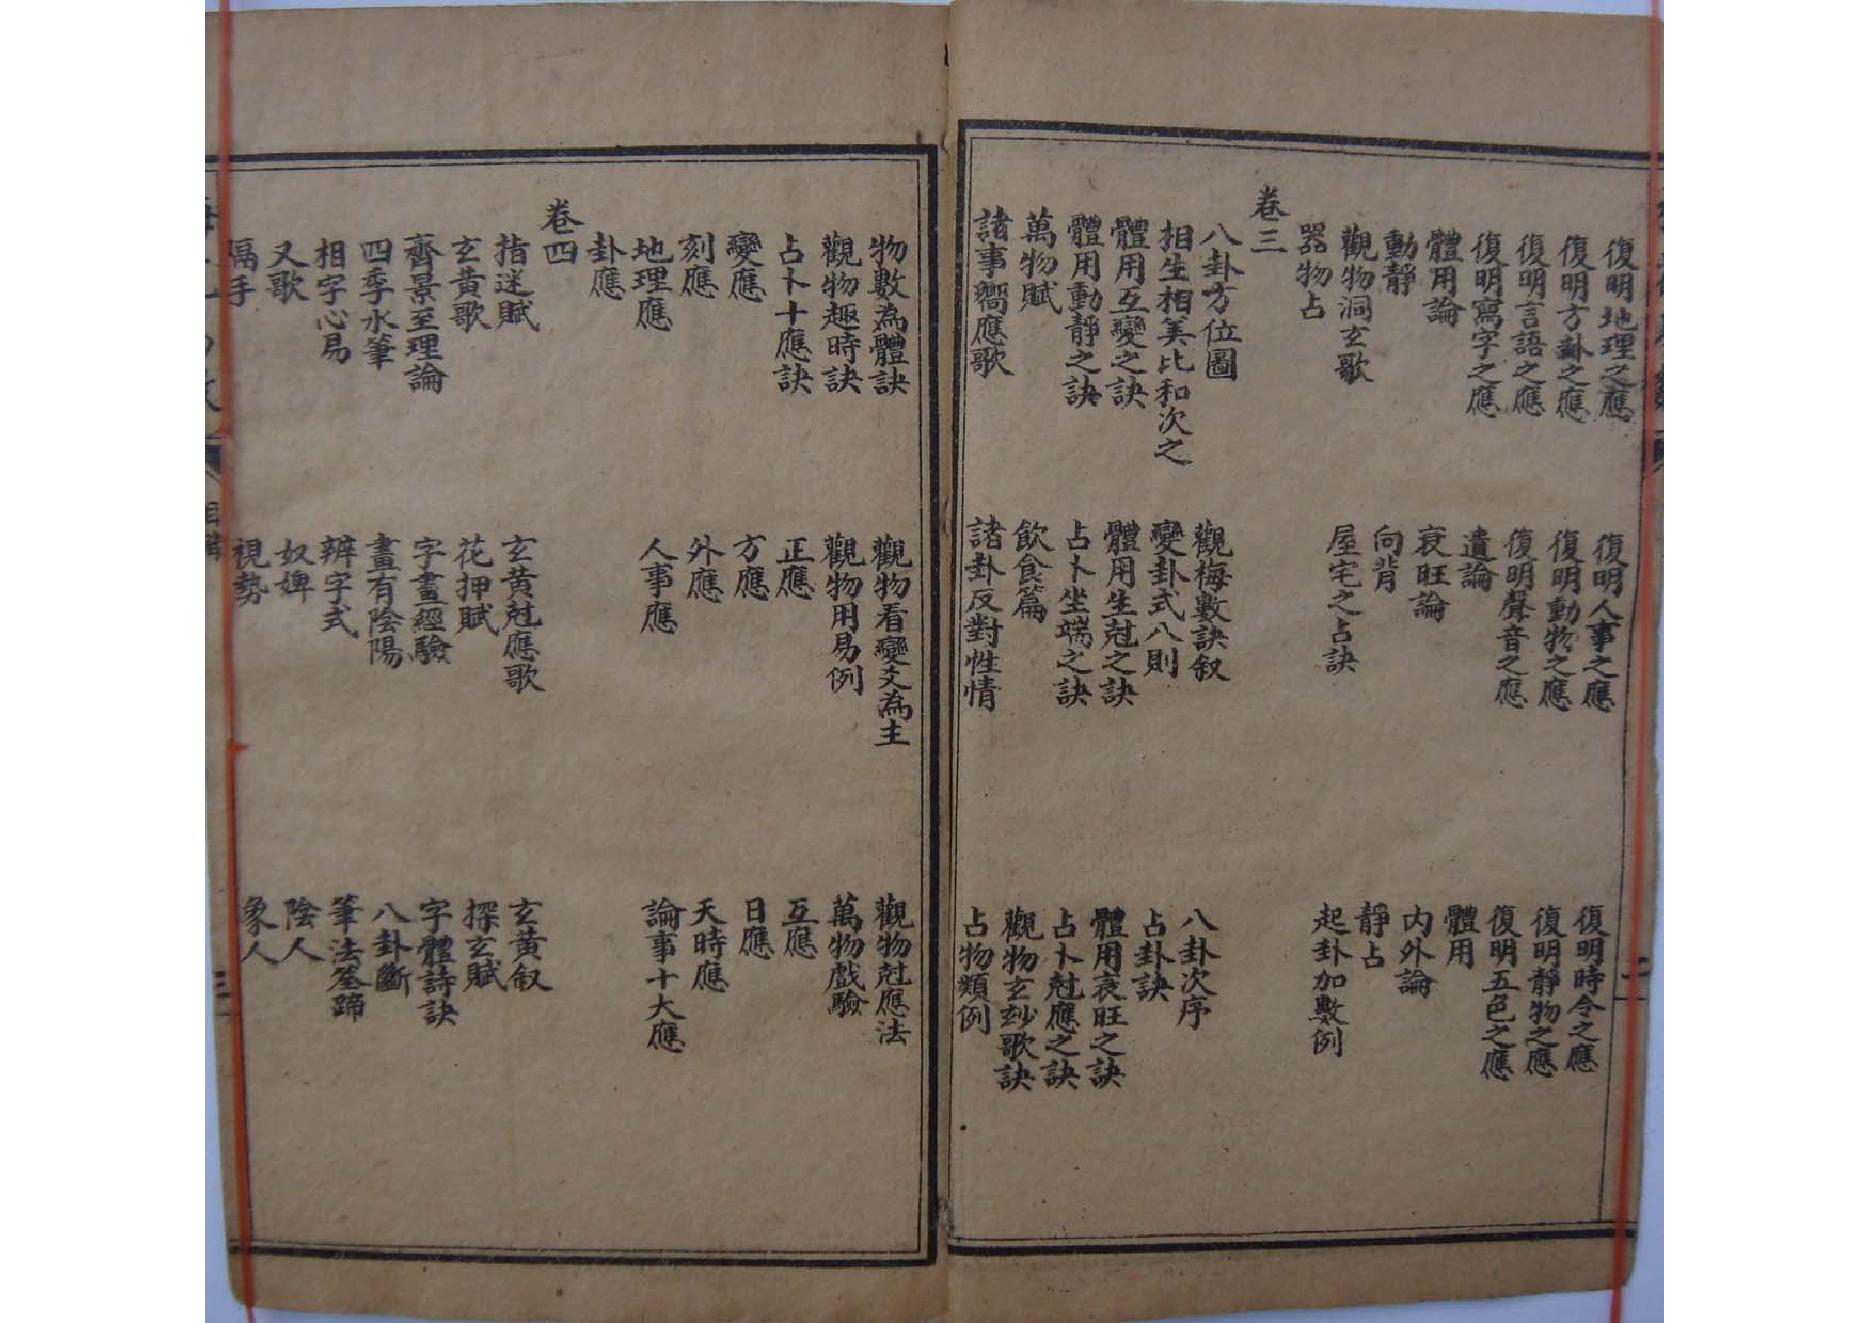 復明地理之應　復明人事之應　復明時令之應
復明方卦之應　復明動物之應　復明靜物之應
復明言語之應　復明聲音之應　復明五色之應
復明寫字之應　遺論　體用
體用論　衰旺論　内外論
動靜　向背　靜占
觀物洞玄歌　屋宅之占訣　起卦加數例
器物占
卷三
八卦方位圖　觀梅數訣叙　八卦次序
相生相尅比和次之　變卦式八則　占卦訣
體用互變之訣　體用生尅之訣　體用衰旺之訣
體用動靜之訣　占卜坐端之訣　占卜尅應之訣
萬物賦　飲食篇　觀物玄玅歌訣
諸事響應歌　諸卦反對性情　占物類例
物數為體訣　觀物看變爻為主　觀物尅應法
觀物趣時訣　觀物用易例　萬物戲驗
占卜十應訣　正應　互應
變應　方應　日應
刻應　外應　天時應
地理應　人事應　論事十大應
卦應
卷四
指迷賦　玄黄尅應歌　玄黄叙
玄黄歌　花押賦　探玄賦
齊景至理論　字畫經驗　字體詩訣
四季水筆　畫有陰陽　八卦斷
相字心易　辨字式　筆法筌蹄
又歌　奴婢　陰人
隔手　視勢　象人